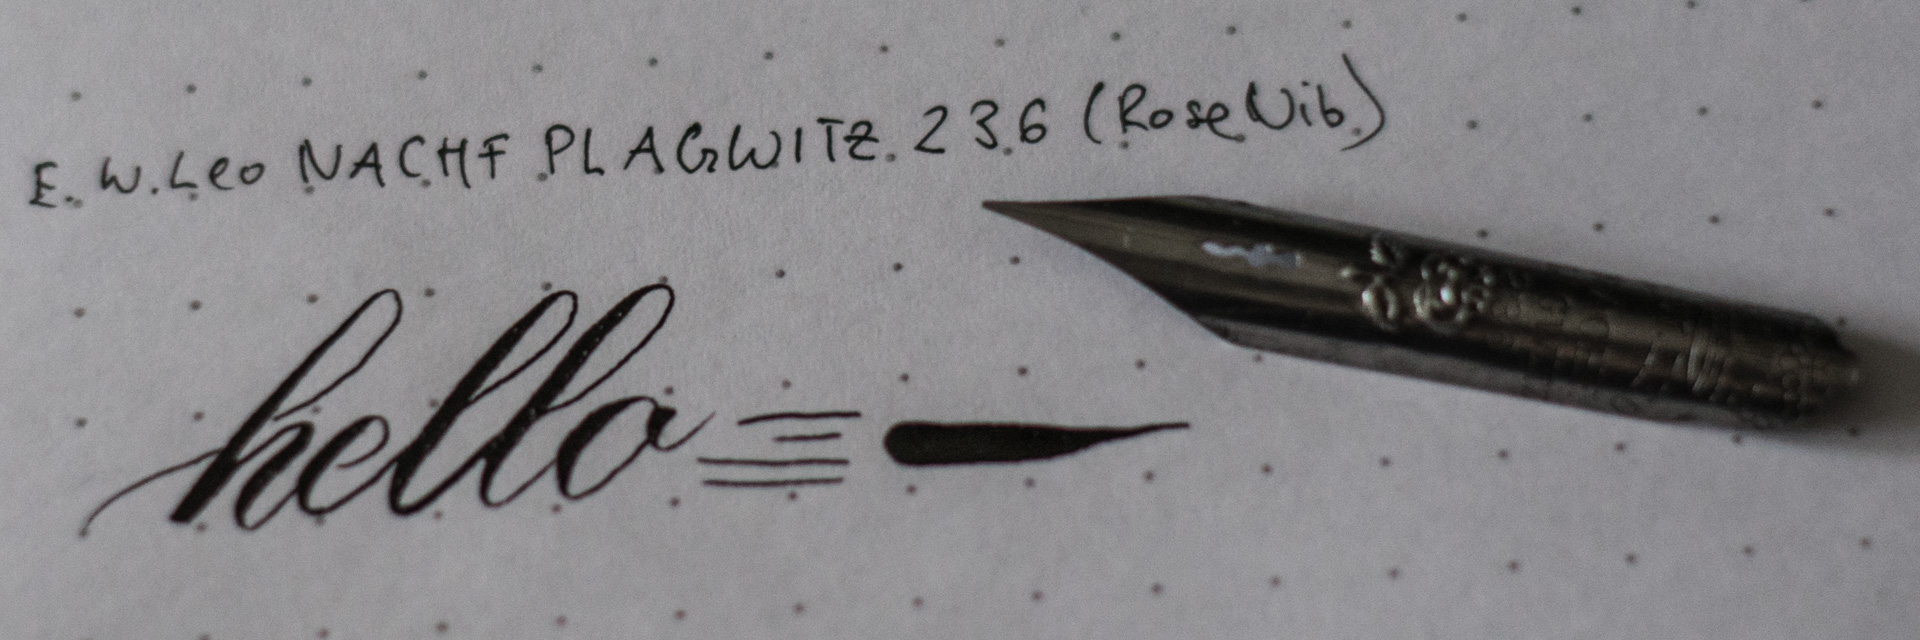 E. W. Leo NACHF PLAGWITZ 236 (Rose Nib)
hello